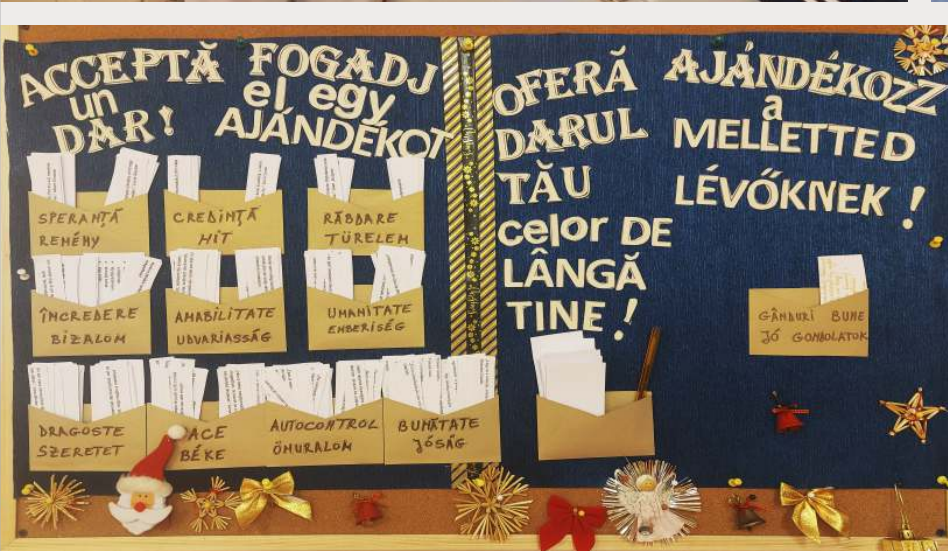 ACCEPTĂ
un
DAR!
FOGADJ
el egy
AJÁNDÉKOT
SPERANȚĂ
REMÉNY
CREDINȚĂ
HIT
RĂBDARE
TÜRELEM
ÎNCREDERE
BIZALOM
AMABILITATE
UDVARIASSÁG
UMANITATE
EMBERISÉG
DRAGOSTE
SZERETET
ACE
BÉKE
AUTOCONTROL
ÖNURALOM
BUNĂTATE
JÓSÁG
OFERĂ
DARUL
TĂU
celor DE
LÂNGĂ
TINE!
AJÁNDÉKOZZ
a
MELLETTED
LÉVŐKNEK!
GÂNDURI BUNE
JÓ GONDOLATOK